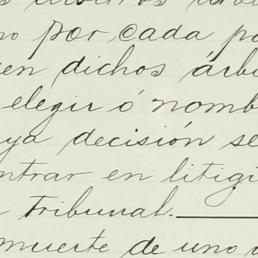 árbitros
no por cada pa
en dichos árbi
elegir ó nomb
ya decisión se
ntrar en litigi
Tribunal.
muerte de uno